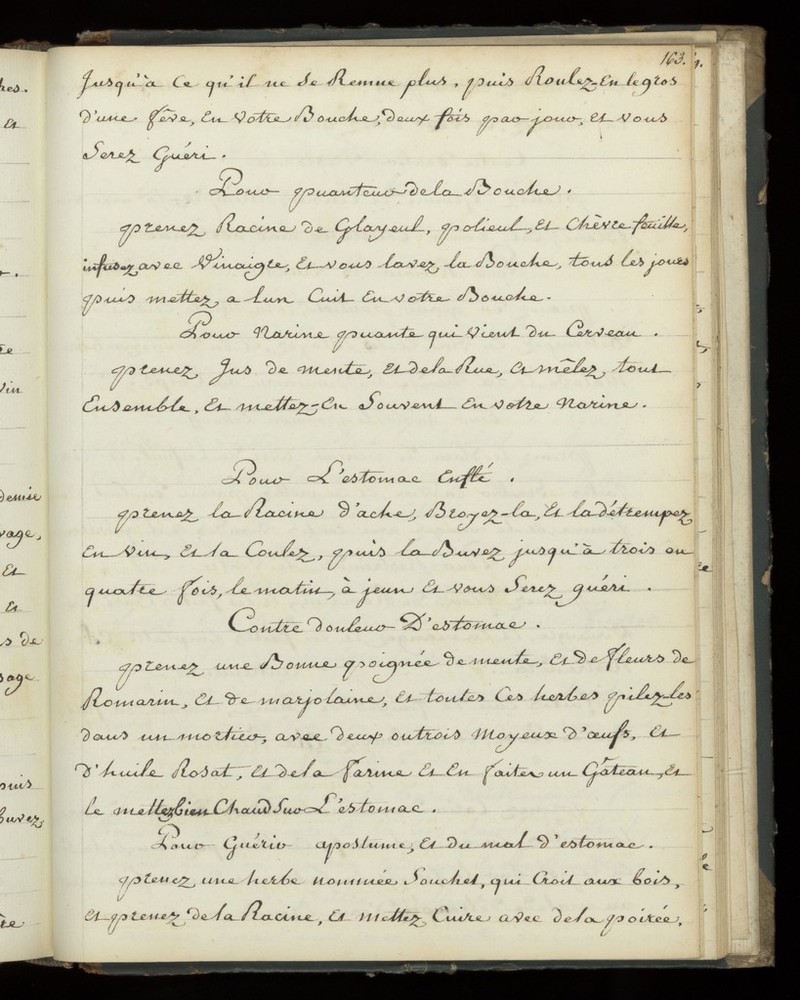 163.
Jusqu'à Ce qu'il ne Se Remue plus, puis Roulez-En le gros
d'une fêve, En Votre Bouche, deux fois par jour, Et vous
Serez Guéri.
Pour puanteur de la Bouche.
prenez Racine de Glayeul, polieul, Et Chèvre feuille,
infusez avec Vinaigre, Et vous lavez la Bouche, tous les jours
puis mettez a lun Cuit En votre Bouche.
Pour Narine puante qui Vient du Cerveau.
prenez Jus de mente, Et de la Rue, Et mêlez tout
Ensemble, Et mettez-En Souvent En votre Narine.
Pour L'estomac Enflé.
prenez la Racine d'ache, Broyez-la, Et la détrempez
En Vin, Et la Coulez, puis la Buvez jusqu'à trois ou
quatre fois, le matin, à jeun Et vous Serez guéri.
Contre douleur D'estomac.
prenez une Bonne poignée de mente, Et de fleurs de
Romarin, Et de marjolaine, Et toutes Ces herbes pilez-les
dans un mortier, avec deux ou trois Moyeux d'œufs, Et
d'huile Rosat, Et de la farine Et En faites un Gâteau, Et
le mettez bien Chaud Sur L'estomac.
Pour Guérir apostume, Et du mal d'estomac.
prenez une herbe nommée Souchet, qui Croit aux bois,
Et prenez de la Racine, Et mettez Cuire avec de la poirée,